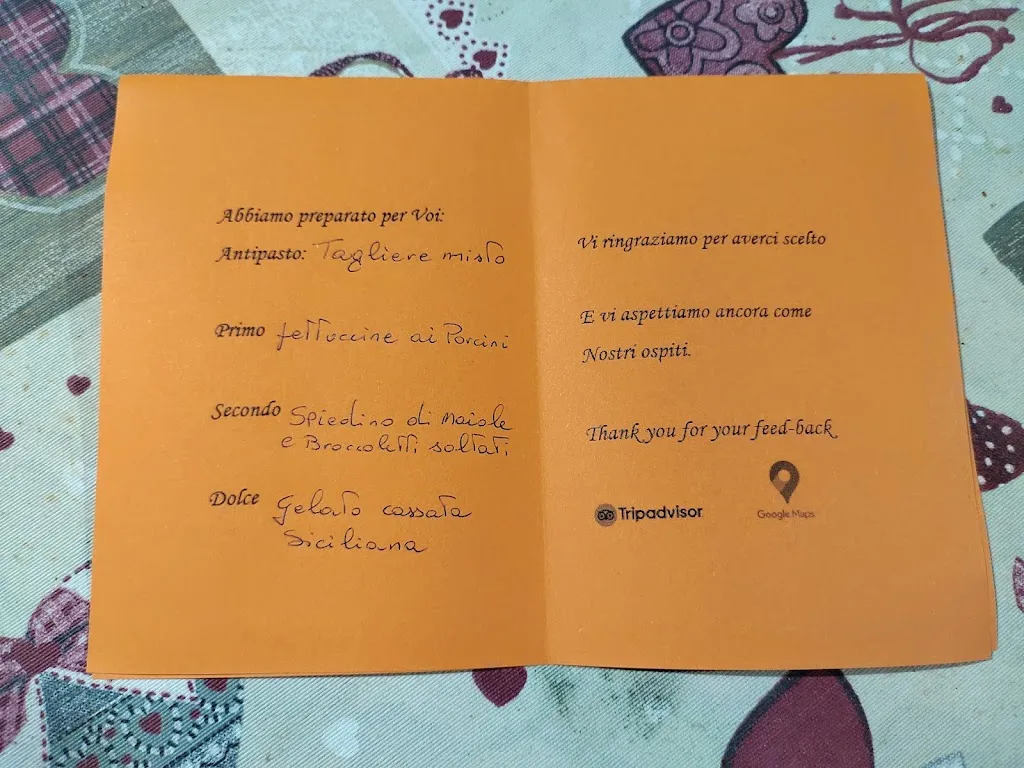 Abbiamo preparato per Voi:
Antipasto: Tagliere misto
Primo fettuccine ai Porcini
Secondo Spiedino di Maiale
e Broccoletti saltati
Dolce gelato cassata
Siciliana
Vi ringraziamo per averci scelto
E vi aspettiamo ancora come
Nostri ospiti.
Thank you for your feed-back
Tripadvisor
Google Maps